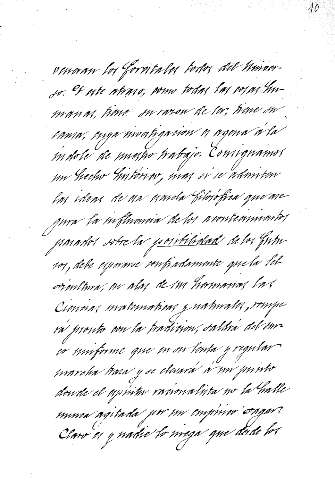 10
veneran los Forestales todos del Univer-
so. Y este atraso, como todas las cosas hu-
manas, tiene su razon de ser; tiene su
causa, cuya investigacion es agena á la
índole de nuestro trabajo. Consignamos
un hecho histórico, mas si se admiten
las ideas de una escuela filosófica que ase-
gura la influencia de los acontecimientos
pasados sobre la posibilidad de los futu-
ros, debe esperarse confiadamente que la Sel-
vicultura, en alas de sus hermanas las
Ciencias matemáticas y naturales, rompe-
rá pronto con la tradicion, saldrá del sur-
co uniforme que en su lenta y regular
marcha traza y se elevará á un punto
donde el espíritu racionalista no la halle
nunca agitada por un empírico
Claro es y nadie lo niega que desde los